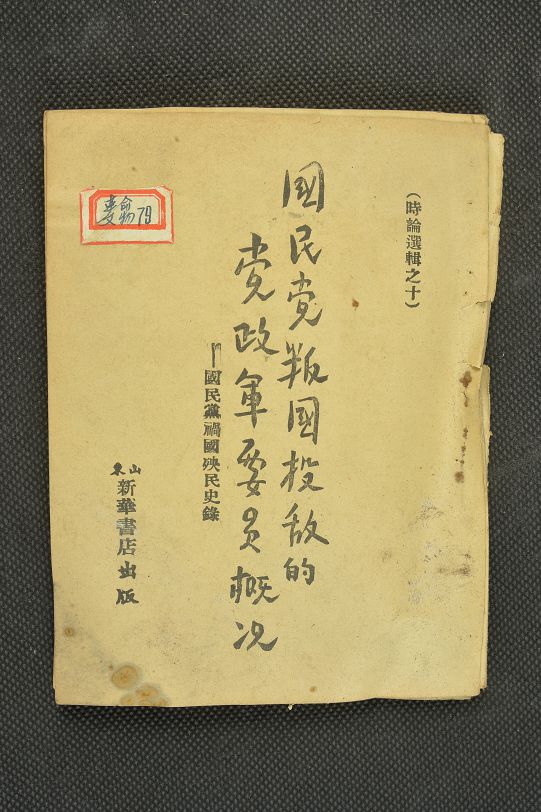 （時論選輯之十）
國民党叛國投敌的
党政軍要员概况
—國民黨禍國殃民史錄
山東
新華書店出版
79